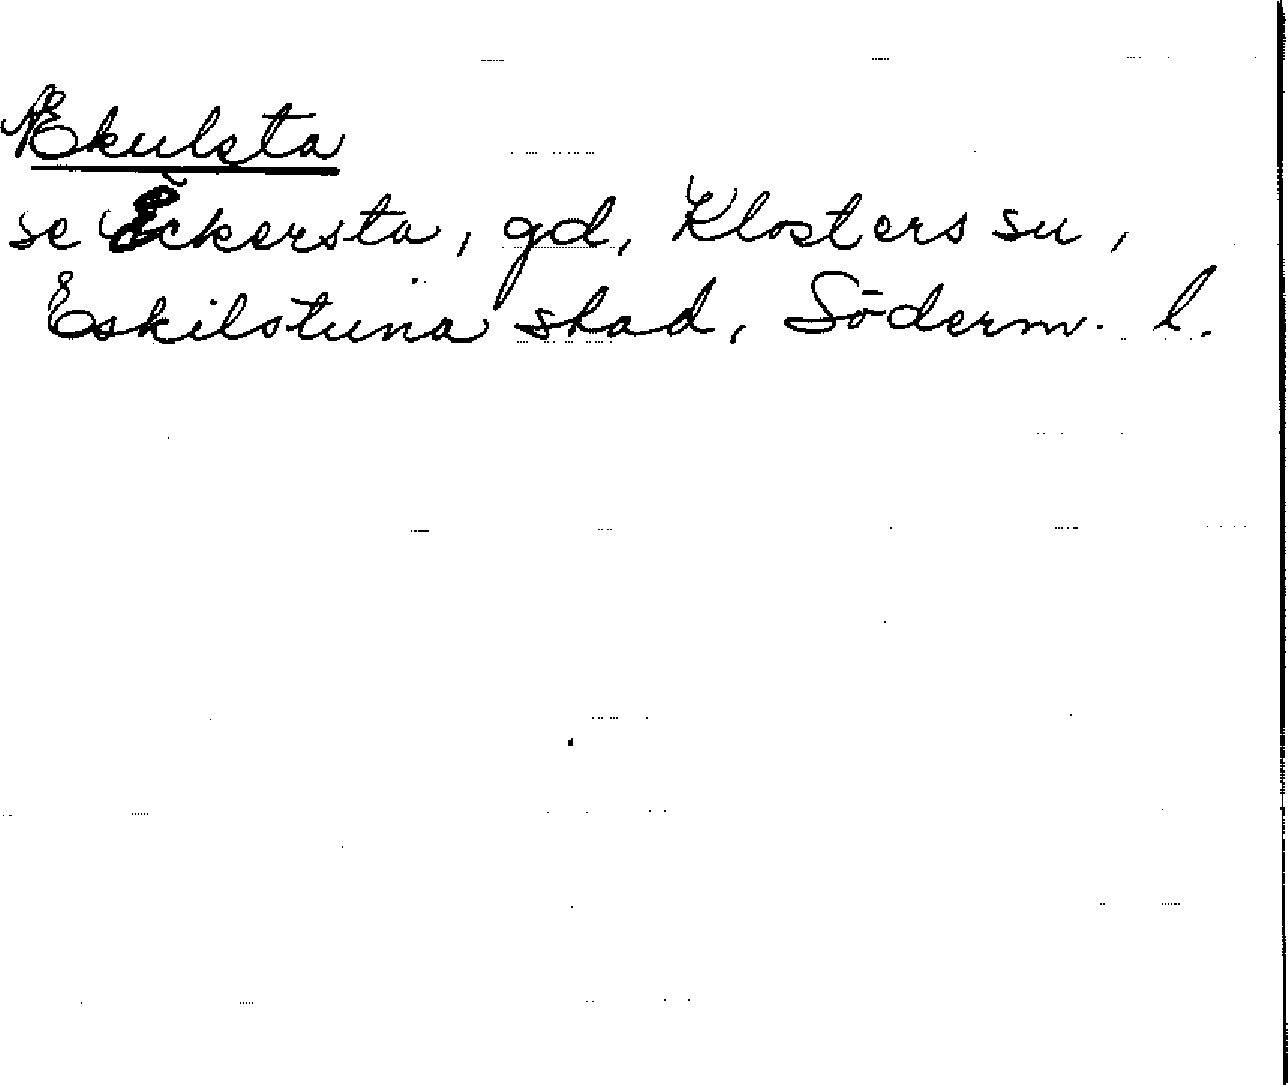 Ekulsta
se Eckersta, gd, Klosters su,
Eskilstuna stad, Söderm. l.